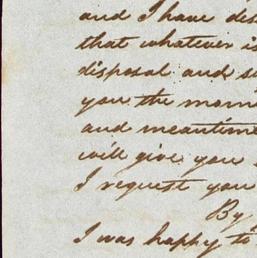 and I have des
that whatever is
disposal and su
you the mome
and meantime
will give you
I request you
By
I was happy to